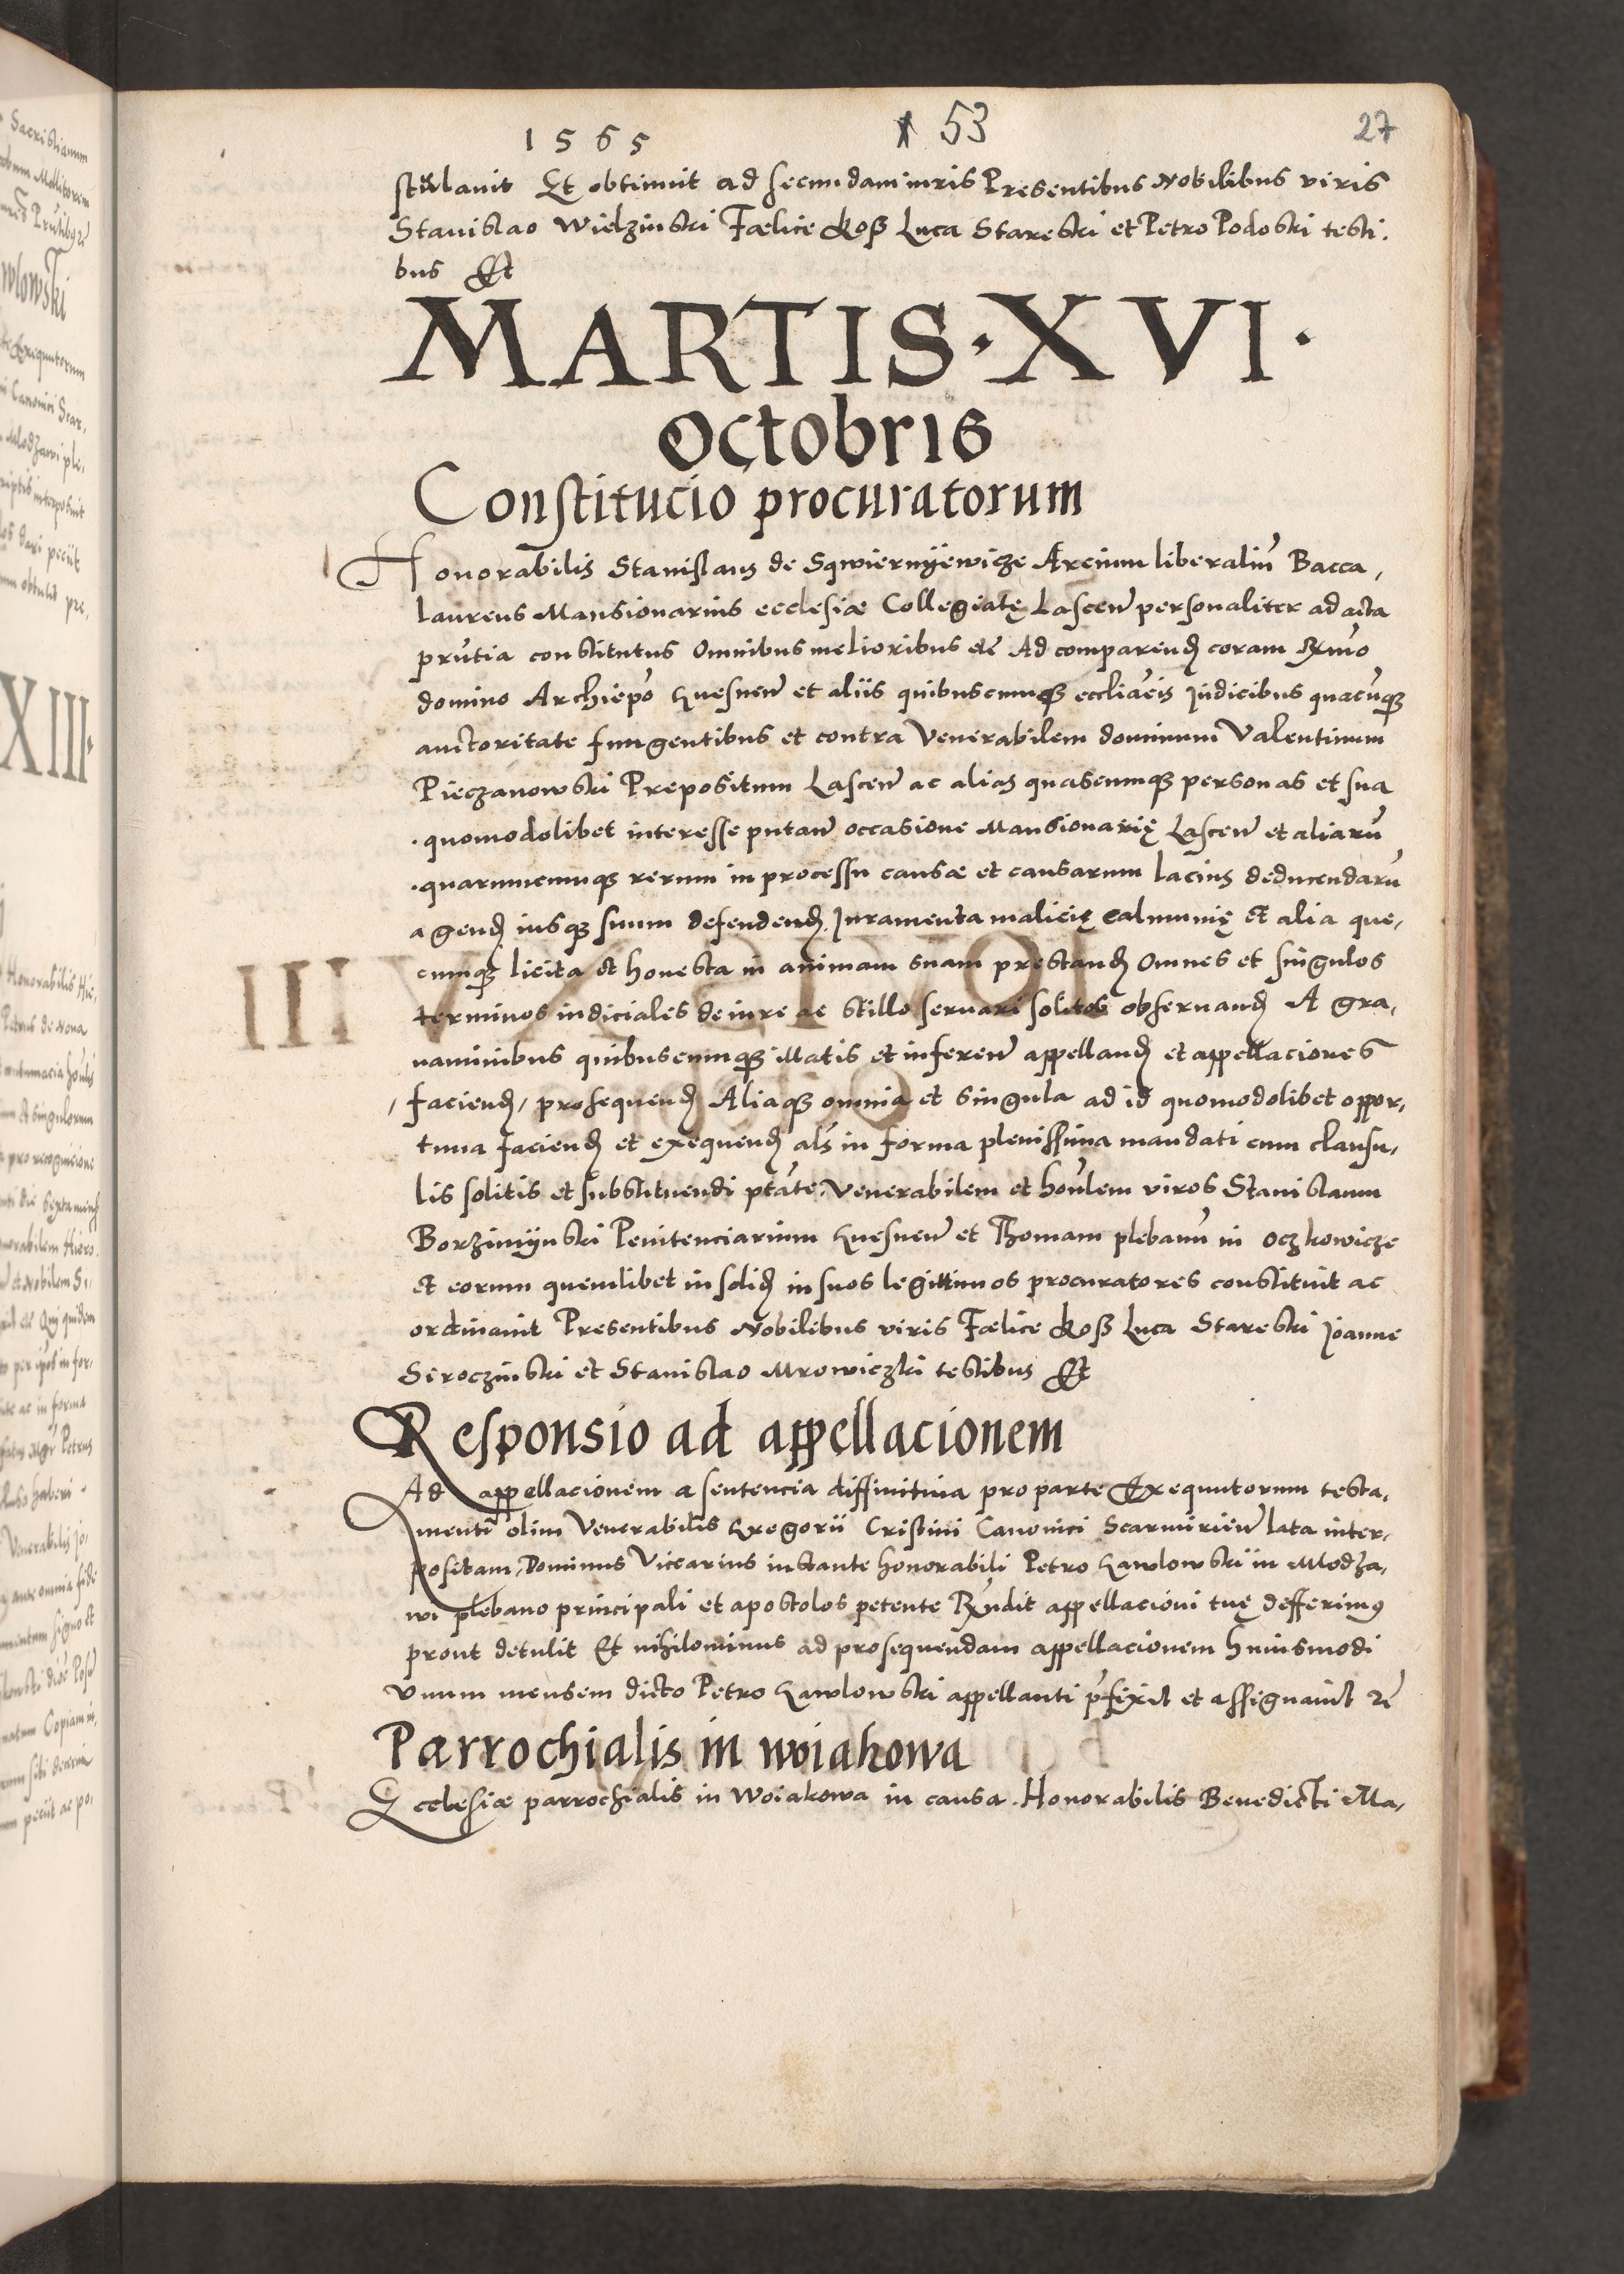 1565
53
27
stulavit Et obtinuit ad secundam iuris Presentibus Nobilibus viris
Stanislao Wielzinski Fœlice Koß Luca Stareski et Petro Podoski testi.
bus Et
MARTIS·XVI·
Octobris
Constitucio procuratorum
Honorabilis Stanislaus de Sqwiernÿewicze Arcium liberaliũ Bacca,
laureus Mansionarius ecclesiæ Collegiatę Lasceñ personaliter ad acta
prñtia constitutus Omnibus melioribus etc̃ Ad comparend̨ coram Rmo
domino Archiepõ Gnesneñ et aliis quibuscumqȝ eccliãcis Judicibus quacũqȝ
auctoritate fungentibus et contra Venerabilem dominum Valentinum
Pieczanowski Prepositum Lasceñ ac alias quascumqȝ personas et sua
quomodolibet interesse putañ occasione Mansionarię Lasceñ et aliarũ
quarumcumqȝ rerum in processu causæ et causarum lacius deducendarũ
agend̨ iusqȝ suum defendend̨ Juramenta malicię calumnię et alia que,
cumqȝ licita et honesta in animam suam prestand̨ Omnes et singulos
terminos iudiciales de iure ac stillo servari solitos observand̨ A gra,
vaminibus quibuscumqȝ illatis et inferen̄ appelland̨ et appellaciones
faciend̨, prosequend̨ Aliaqȝ omnia et singula ad id quomodolibet oppor,
tuna faciend̨ et exequend̨ al̃s in forma plenissima mandati cum clausu,
lis solitis et substituendi ptãte, Venerabilem et hoñlem viros Stanislaum
Borzimÿnski Penitenciarium Gnesneñ et Thomam plebanũ in Oczkowicze
et eorum quemlibet in solid̨ in suos legittimos procuratores constituit ac
ordinavit Presentibus Nobilibus viris Fœlice Koß Luca Stareski Joanne
Seroczinski et Stanislao Mrowiczki testibus Et
Responsio ad appellacionem
Ad appellacionem a sentencia diffinitiva pro parte Exequutorum testa,
menti olim Venerabilis Gregorii Cristini Canonici Scarmirieñ lata inter,
positam, Dominus Vicearius instante honorabili Petro Gawlowski in Mlodza,
wi plebano principali et apostolos petente Rñdit appellacioni tuę defferimus
prout detulit Et nihilominus ad prosequendam appellacionem huiusmodi
Unum mensem dicto Petro Gawlowski appellanti p̃fixit et assignavit etc̃
Parrochialis in Woiakowa
Ecclesiæ parrochialis in Woiakowa in causa Honorabilis Benedicti Ma,